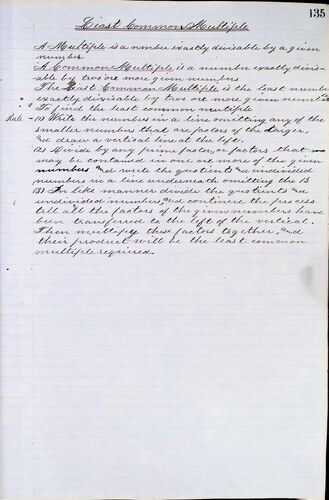 135
Least Common Multiple
A Multiple is a nmber exactly divisable by a given
number
A Common Multiple is a number exactly divis-
able by two ore more given numbers
The Least Common Multiple is the least number
exactly divisable by two ore more given numbers
To find the least common multiple
Rule - (1) Write the numbers in a line omitting any of the
smaller numbers that are factors of the larger.
and draw a vertical line at the left.
(2) Divide by any prime factor, or factors that
may be contained in one ore more of the given
numbers and write the quotients and undivided
numbers in a line underneath omitting the 1s
(3) In like manner divide the quotients and
undivided numbers, and continue the process
till all the factors of the given numbers have
been transferred to the left of the vertical.
Then multiply these factors together, and
their product will be the least common
multiple required.